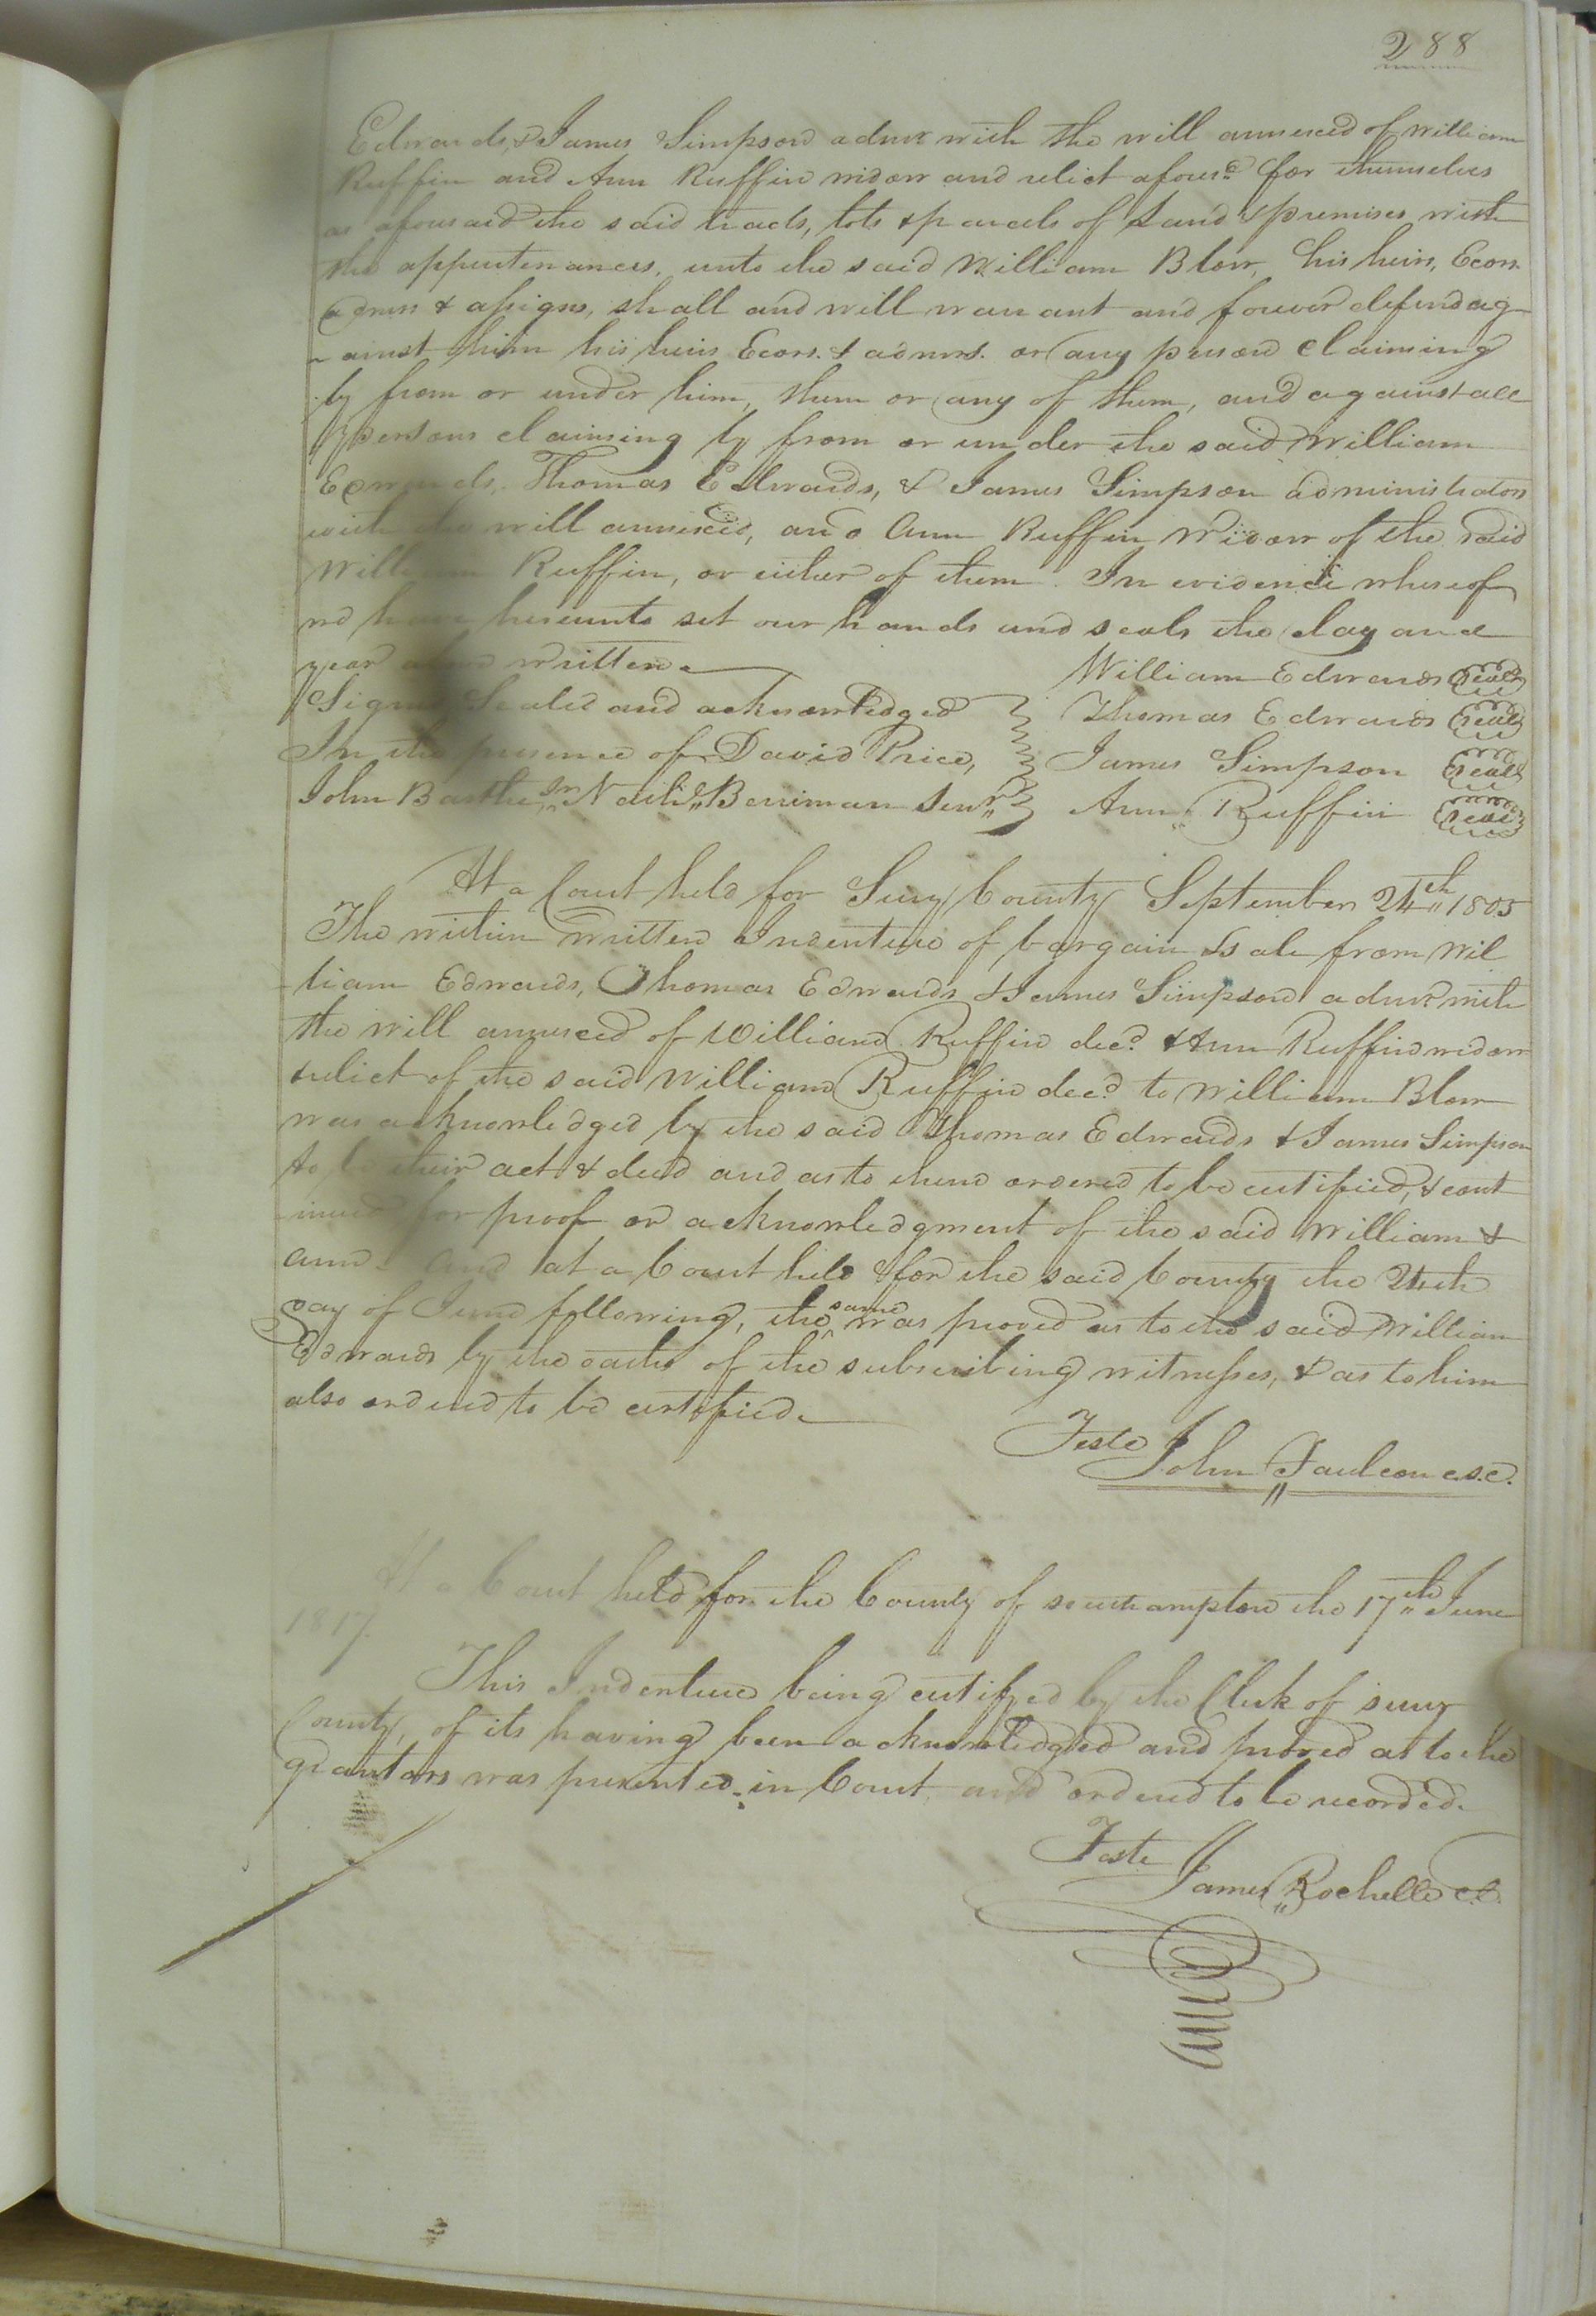 288
Edwards, & James Simpson admr with the will annexed of William
Ruffin and Ann Ruffin widow and relict afores.d for themselves
as aforesaid the said tracts, lots & parcels of Land & premises with
the appurtenances, unto the said William Blow, his heirs, Ecors
admrs & assigns, shall and will warrant and forever defend ag-
-ainst him his heirs Ecors. & admrs. or any person claiming
by from or under him, them or any of them, and against all
persons claiming by from or under the said William
Edwards, Thomas Edwards, & James Simpson administrators
with the will annexed, and Ann Ruffin Widow of the said
William Ruffin, or either of them. In evidence whereof
we have hereunto set our hands and seals the day and
year above written.
William Edwards seal
Signed Sealed and acknowledged
Thomas Edwards seal
In the presence of David Price,
James Simpson seal
John Jr. Berriman Senr.
Ann Ruffin seal
At a Court held for Surry County September 24th 1805
The within written Indenture of bargain & sale from Wil
liam Edwards, Thomas Edwards & James Simpson admr. with
the will annexed of William Ruffin decd. & Ann Ruffin widow
& relict of the said William Ruffin decd. to William Blow
was acknowledged by the said Thomas Edwards & James Simpson
to be their act & deed and as to them ordered to be certified, & cont
-inued for proof or acknowledgment of the said William &
ann. And at a Court held for the said County the 24th
day of June following, the same was proved as to the said William
Edwards by the oaths of the subscribing witnesses, & as to him
also ordered to be certified.
Teste
John Faulcon c.s.c.
At a Court held for the County of southampton the 17th June
1817.
This Indenture being certifyed by the Clerk of surry
County, of its having been acknowledged and proved as to the
grantors was presented in Court and ordered to be recorded.
Teste
James Rochelle cl.